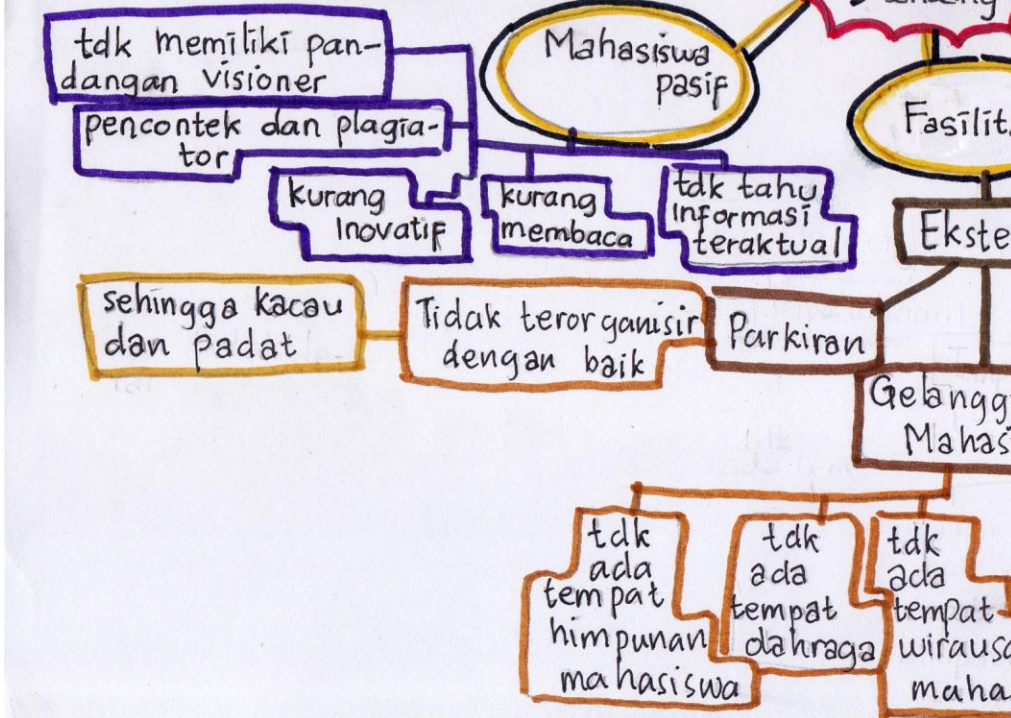 tdk memiliki pan-
dangan visioner
pencontek dan plagia-
tor
kurang
Inovatif
kurang
membaca
tdk tahu
informasi
teraktual
Mahasiswa
pasif
Fasilit
Ekste
sehingga kacau
dan padat
Tidak terorganisir
dengan baik
Parkiran
Gelangg
Mahas
tdk
ada
tempat
himpunan
mahasiswa
tdk
ada
tempat
olahraga
tdk
ada
tempat
wiraus
maha